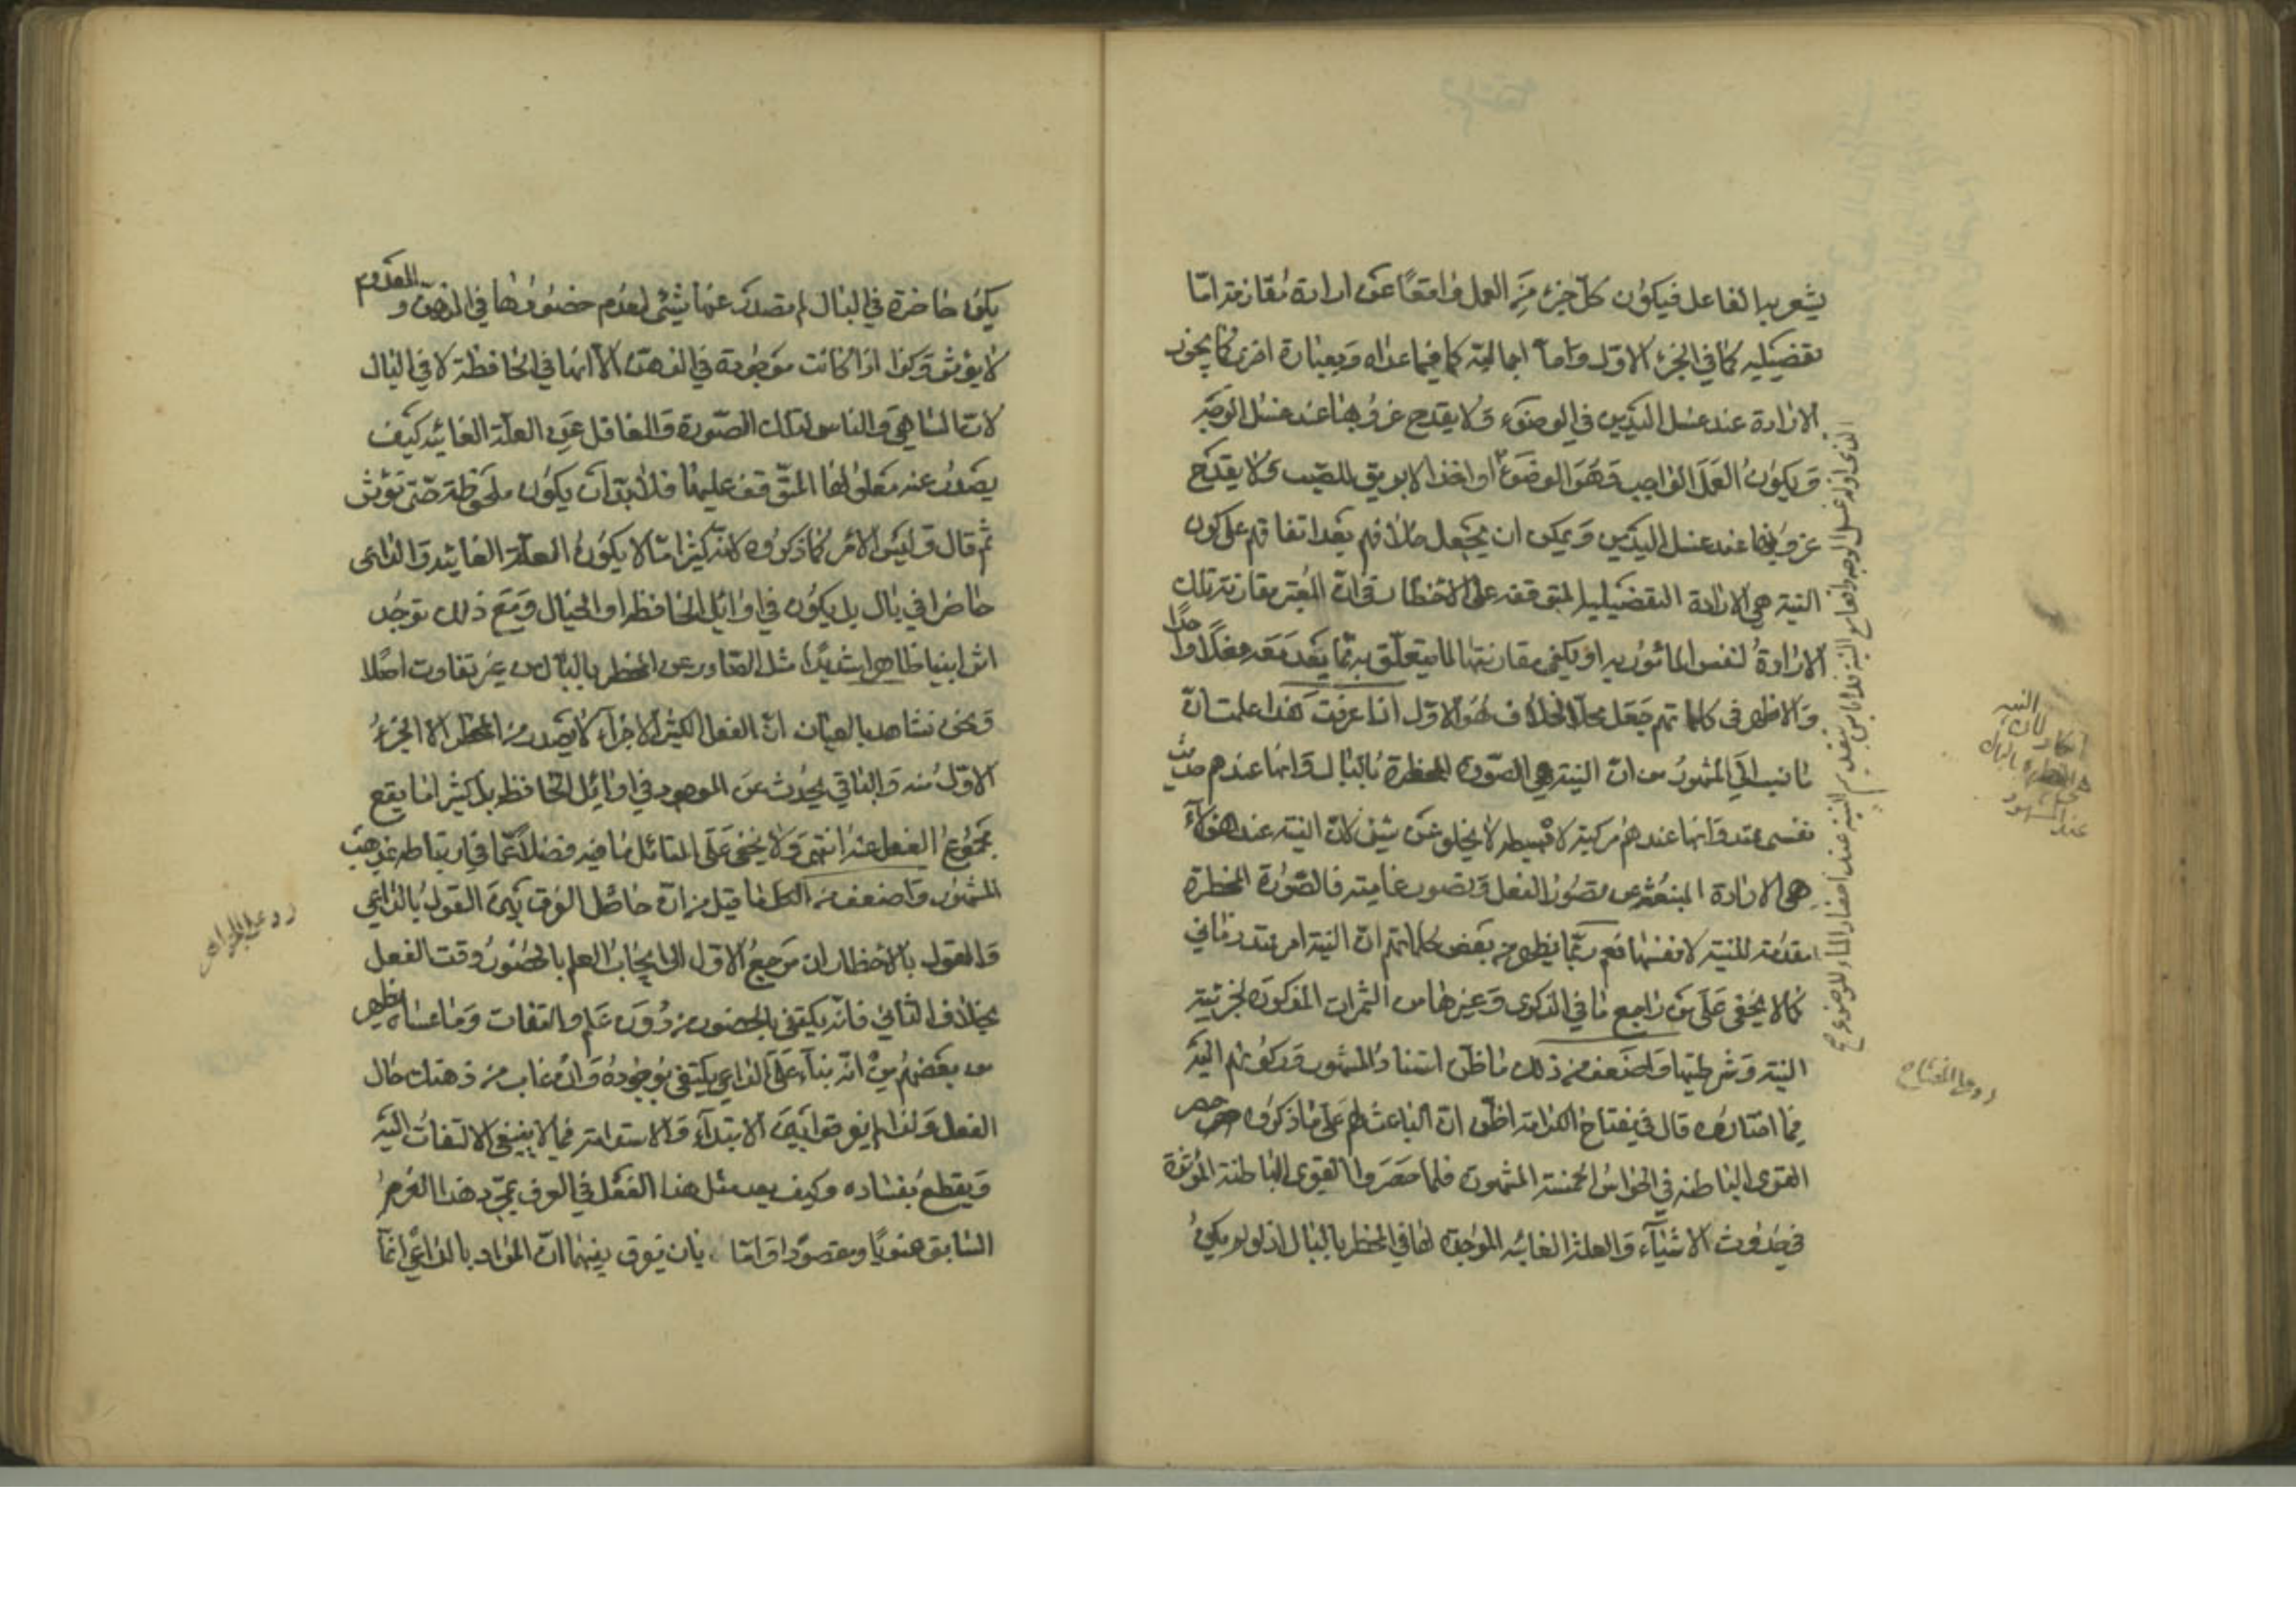 يشعر به الفاعل فيكون كل جزء من العمل واقعا عن ارادة مقارنة اما
تفصيليه كما في الجزء الاول واما اجماليه كما فيما عداه وبعبارة اخرى كما يجوز
الارادة عند غسل اليدين في الوضوء ولا يقدح عزوبها عند غسل الوجه
ويكون العمل الواجب وهو الوضوء او اخذ الابريق للصب ولا يقدح
عزوبها عند غسل اليدين ويمكن ان يجعل خلافهم بعد اتفاقهم على كون
النية هي الارادة التفصيلية المتوقفه على الاخطار في ان المعتبر مقارنة تلك
الارادة لنفس المأمور به او يكفي مقارنتها لما يتعلق به مما يعد معه فعلا واحدا
والاظهر في كلماتهم جعل محل الخلاف هو الاول اذا عرفت هذا علمت ان
ما نسب الى المشهور من ان النية هي الصورة المخطرة بالبال وانها عندهم حديث
نفسي ممتد وانها عندهم مركبة لا بسيطه لا يخلو عن شيء لان النية عند هؤلاء
هي الارادة المنبعثة عن تصور الفعل وتصور غايته فالصورة المخطرة
مقدمة للنية لا نفسها نعم ربما يظهر من بعض كلماتهم ان النية امر ممتد زماني
كما لا يخفى على من راجع ما في الذكرى وغيرها من الثمرات المذكورة لجزئية
النية وشرطيتها واضعف من ذلك ما ظن استناد المشهور وركونهم اليه
فيما اختاروه قال في مفتاح الكرامة اظن ان الباعث لهم على ما ذكروه حصر
القوى الباطنه في الحواس الخمسة المشهورة فلما حصروا القوى الباطنة المؤثرة
في حدوث الاشياء والعلة الغائيه الموجدة لها في المخطر بالبال اذ لو لم يكن
الذي اوله غسل الوجه
النية عند احضار الماء للوضوء صح
النية
عند المشهور
رد على المفتاح
يكن حاضرة في البال لم تصدر عنها شيء لعدم حضورها في الذهن و المعدوم
لا يؤثر وكذا اذا كانت موجودة في الذهن الا انها في الحافظة لا في البال
لان الساهي والناسي لتلك الصورة والغافل عن العلة الغائيه كيف
يصدر عنه معلولها المتوقف عليها فلا بد ان يكون ملحوظة حتى تؤثر
ثم قال وليس الامر كما ذكروه لانه كثيرا ما لا يكون العلة الغائيه والداعي
حاضرا في بال بل يكون في اوائل الحافظه او الخيال ومع ذلك توجد
اثر ابينا ظاهرا شديدا مثل الصادر عن المخطر بالبال من غير تفاوت اصلا
ونحن نشاهد بالعيان ان الفعل الكثير الاجزاء لا يصدر من المخطر الا الجزء
الاول منه والباقي يحدث عن الموجود في اوائل الحافظه بل كثيرا ما يقع
مجموع الفعل عنه انتهى ولا يخفى على المتأمل ما فيه فضلا عما في ارتباطه بمذهب
المشهور واضعف من الكل ما قيل من ان حاصل الفرق بين القول بالداعي
والقول بالاخطار ان مرجع الاول الى ايجاب العلم بالحضور وقت الفعل
بخلاف الثاني فانه يكتفى بالحضور من دون علم والتفات وما عساه يظهر
من بعضهم من انه بناء على الداعي يكتفى بوجوده وان غاب من ذهنك حال
الفعل ولذا لم يفرقوا بين الابتداء والاستدامة فمما لا ينبغي الالتفات اليه
ويقطع بفساده وكيف يعد مثل هذا الفعل في العرف بمجرد هذا العزم
السابق منويا ومقصودا واما بان يفرق بينهما ان المراد بالداعي انما
رد على الجواهر